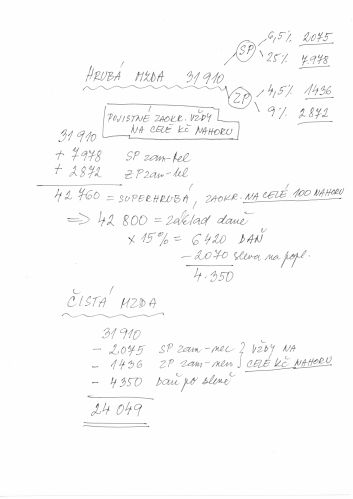 HRUBÁ MZDA 31 910
SP 6,5% 2.075
25% 7.978
ZP 4,5% 1436
9% 2.872
POJISTNÉ ZAOKR. VŽDY
NA CELÉ KČ NAHORU
31 910
+ 7978 SP zam-tel
+ 2872 ZP zam-tel
42 760 = SUPERHRUBÁ, ZAOKR. NA CELÉ 100 NAHORU
=> 42 800 = základ daně
x 15% = 6420 DAŇ
- 2070 sleva na popl.
4.350
ČISTÁ MZDA
31910
- 2.075 SP zam-nec } VŽDY NA
- 1436 ZP zam-nec CELÉ KČ NAHORU
- 4350 Daň po slevě
24 049